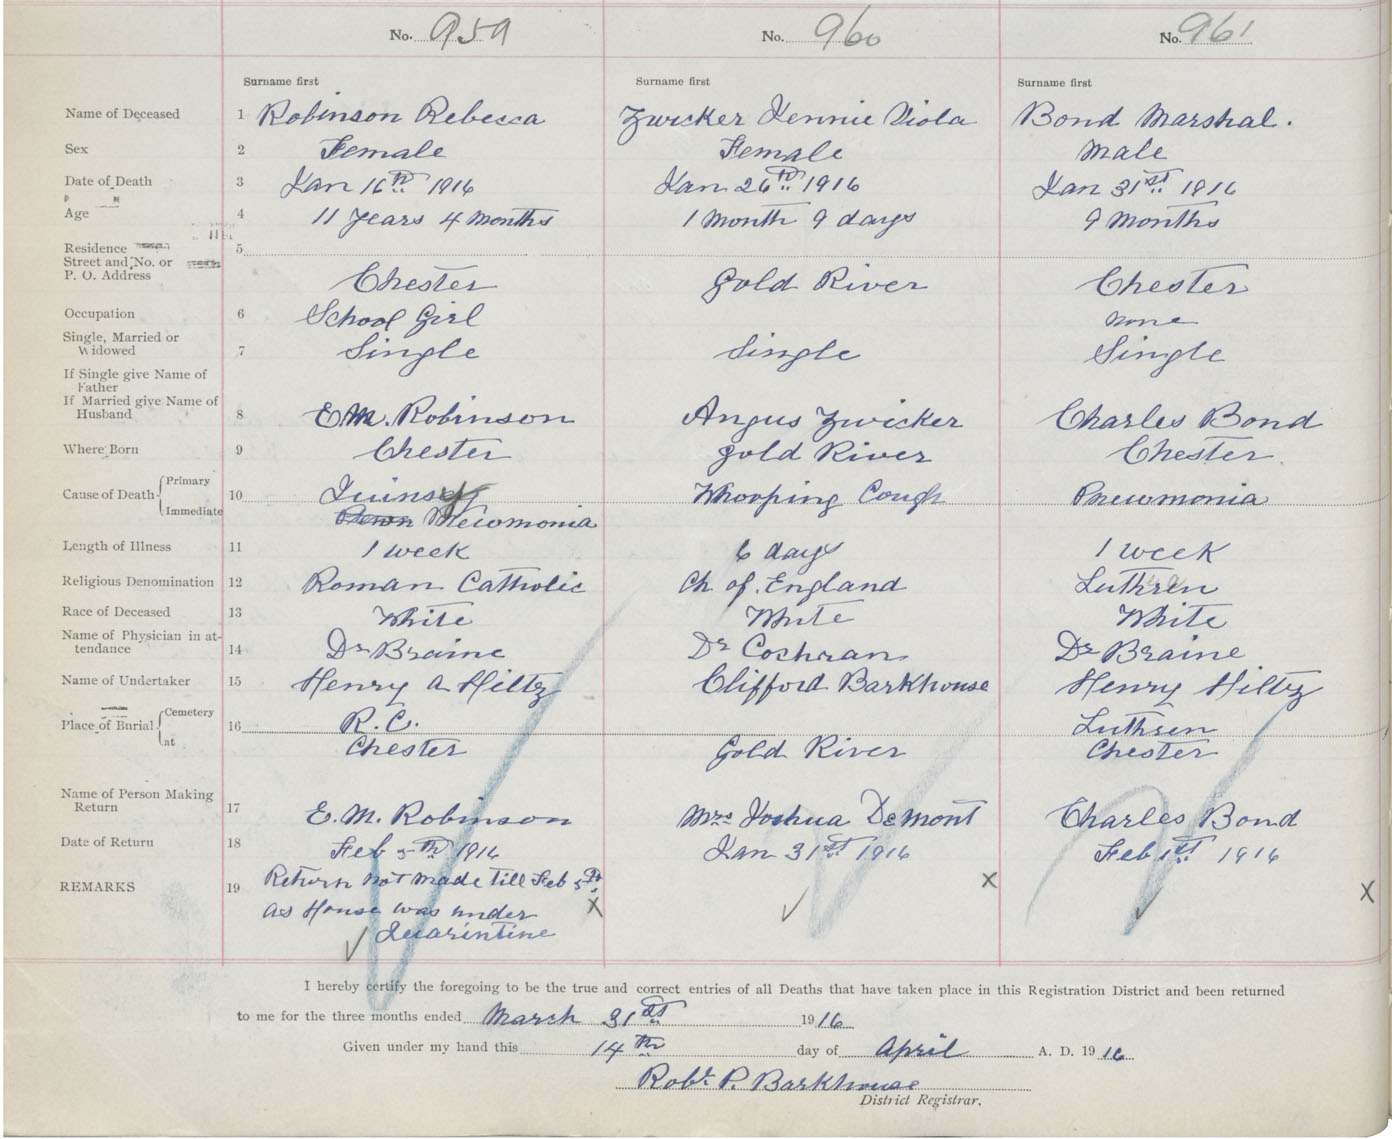 No. 959 No. 960 No. 961
Surname first Surname first Surname first
Name of Deceased 1 Robinson Rebecca Zwicker Jennie Viola Bond Marshal.
Sex 2 Female Female Male
Date of Death 3 Jan 16th 1916 Jan 26th 1916 Jan 31st 1916
Age 4 11 years 4 months 1 month 9 days 9 months
Residence 5
Street and No. or
P. O. Address Chester Gold River Chester
Occupation 6 School Girl none
Single, Married or
Widowed 7 Single Single Single
If Single give Name of
Father
If Married give Name of
Husband 8 E.M. Robinson Angus Zwicker Charles Bond
Where Born 9 Chester Gold River Chester
Cause of Death Primary 10 Quinsy Whooping Cough Pneumonia
Immediate Pnewmonia
Length of Illness 11 1 week 6 days 1 week
Religious Denomination 12 Roman Catholic Ch of. England Luthren
Race of Deceased 13 White White White
Name of Physician in at-
tendance 14 Dr Braine Dr Cochran Dr Braine
Name of Undertaker 15 Henry A Hiltz Clifford Barkhouse Henry Hiltz
Place of Burial Cemetery 16 R.C. Luthren
at Chester Gold River Chester
Name of Person Making
Return 17 E. M. Robinson Mrs Joshua DeMont Charles Bond
Date of Return 18 Feb 5th 1916 Jan 31st 1916 Feb 1st 1916
REMARKS 19 Return not made till Feb 5th
as House was under
Quarintine
I hereby certify the foregoing to be the true and correct entries of all Deaths that have taken place in this Registration District and been returned
to me for the three months ended March 31st 1916
Given under my hand this 14th day of April A. D. 1916
Robt. P. Barkhouse
District Registrar.